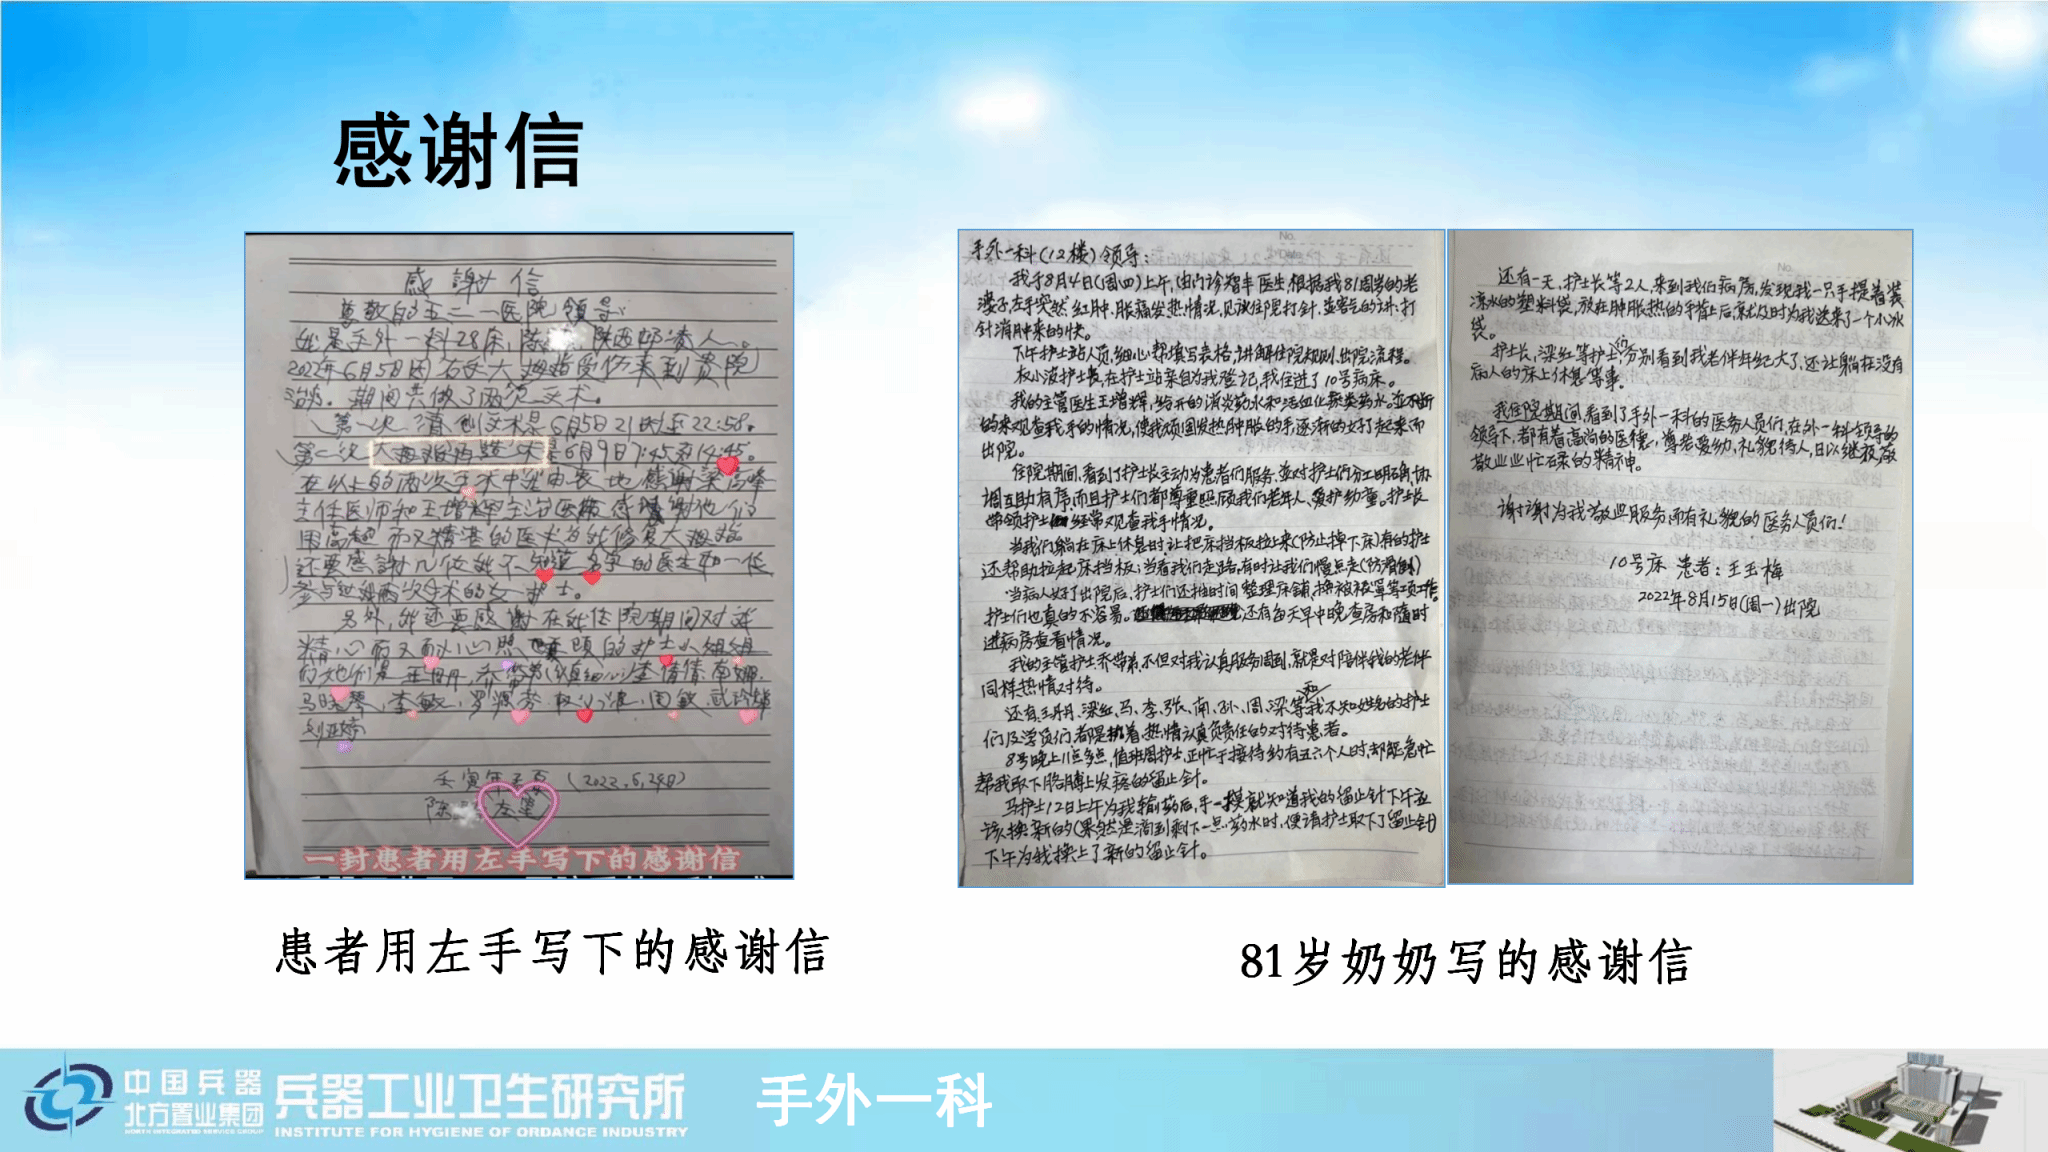 感谢信
感謝信
尊敬的五二一医院领导:
我是手外一科28床,陈 陕西彬 人。
2022年6月5日因右手大拇指受伤来到贵院
治疗。期间共做了两次手术。
第一次 清创手术是6月5日21时至22:58。
第二次 大拇指再造术是6月9日7:45到14:45。
在以上的两次手术中 由衷地感谢梁高峰
主任医师和王增辉主治医师 感謝他们
用高超而又精湛的医术为我修复大拇指
还要感謝几位我不知道名字的医生和一位
参与过我两次手术的女护士。
另外,我还要感謝在我住院期间对我
精心而又耐心照 顾的护士小姐姐
们她们是 王丹丹,乔带弟(认真细心)李倩倩 南娜
马晓琴,李敏,罗源芬 权小波,周敏 武玲娣
刘亚婷
壬寅年 夏 (2022.6.24日)
陈 左笔
一封患者用左手写下的感谢信
患者用左手写下的感谢信
手外一科(12楼)领导:
我于8月4日(周四)上午,由门诊智丰医生,根据我81周岁的老
婆子,左手突然红肿,胀痛发热情况,见议住院打针,並客气的讲:打
针消肿来的快。
下午护士站人员,细心帮填写表格,讲解住院规则,出院流程。
权小波护士长,在护士站亲自为我登记,我住进了10号病床。
我的主管医生王增辉,给开的消炎药水和活血化瘀类药水。並不断
的来观查我手的情况,使我顽固发热肿胀的手,逐渐的好了起来而
出院。
住院期间,看到了护士长主动为患者们服务,並对护士们分工明确,协
调互助有序,而且护士们都尊重照顾我们老年人、爱护幼童。护士长
带领护士 经常观查我手情况。
当我们躺在床上休息时让把床挡板拉上来(防止掉下床)有的护士
还帮助拉起床挡板;当看我们走路,有时让我们慢点走(防滑倒)
当病人好了出院后,护士们还抽时间整理床铺,换被褥罩等项工作。
护士们也真的不容易。 还有每天早中晚查房和随时
进病房查看情况。
我的主管护士乔带弟,不但对我认真服务周到,就是对陪伴我的老伴
同样热情对待。
还有王丹丹、梁红、马、李、张、南、孙、周、梁等和我不知姓名的护士
们及学员们都是抱着热情认真负责任的对待患者。
8号晚上11点多点,值班周护士,正忙于接待约有五六个人时,却能急忙
帮我取下胳膊上发疼的留止针。
马护士12日上午为我输药后,手一摸就知道我的留止针下午应
该换新的(果然是滴到剩下一点药水时,便请护士取下了留止针)
下午为我换上了新的留止针。
还有一天,护士长等2人,来到我们病房,发现我一只手提着装
凉水的塑料袋,放在肿胀热的手背上后,就及时为我送来了一个小冰
袋。
护士长,梁红等护士们,分别看到我老伴年纪大了,还让躺在没有
病人的床上休息等事。
我住院期间,看到了手外一科的医务人员们,在外一科领导的
领导下,都有着高尚的医德,尊老爱幼,礼貌待人,日以继夜敬
敬业业忙碌的精神。
谢谢为我敬业服务而有礼貌的医务人员们!
10号床 患者:王玉梅
2022年8月15日(周一)出院
81岁奶奶写的感谢信
中国兵器
北方置业集团
NORTH INTEGRATED SERVICE GROUP
兵器工业卫生研究所
INSTITUTE FOR HYGIENE OF ORDANCE INDUSTRY
手外一科